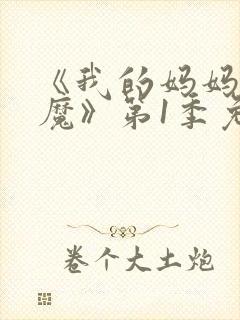 《我的妈妈
魔》第1季
卷个大土炮